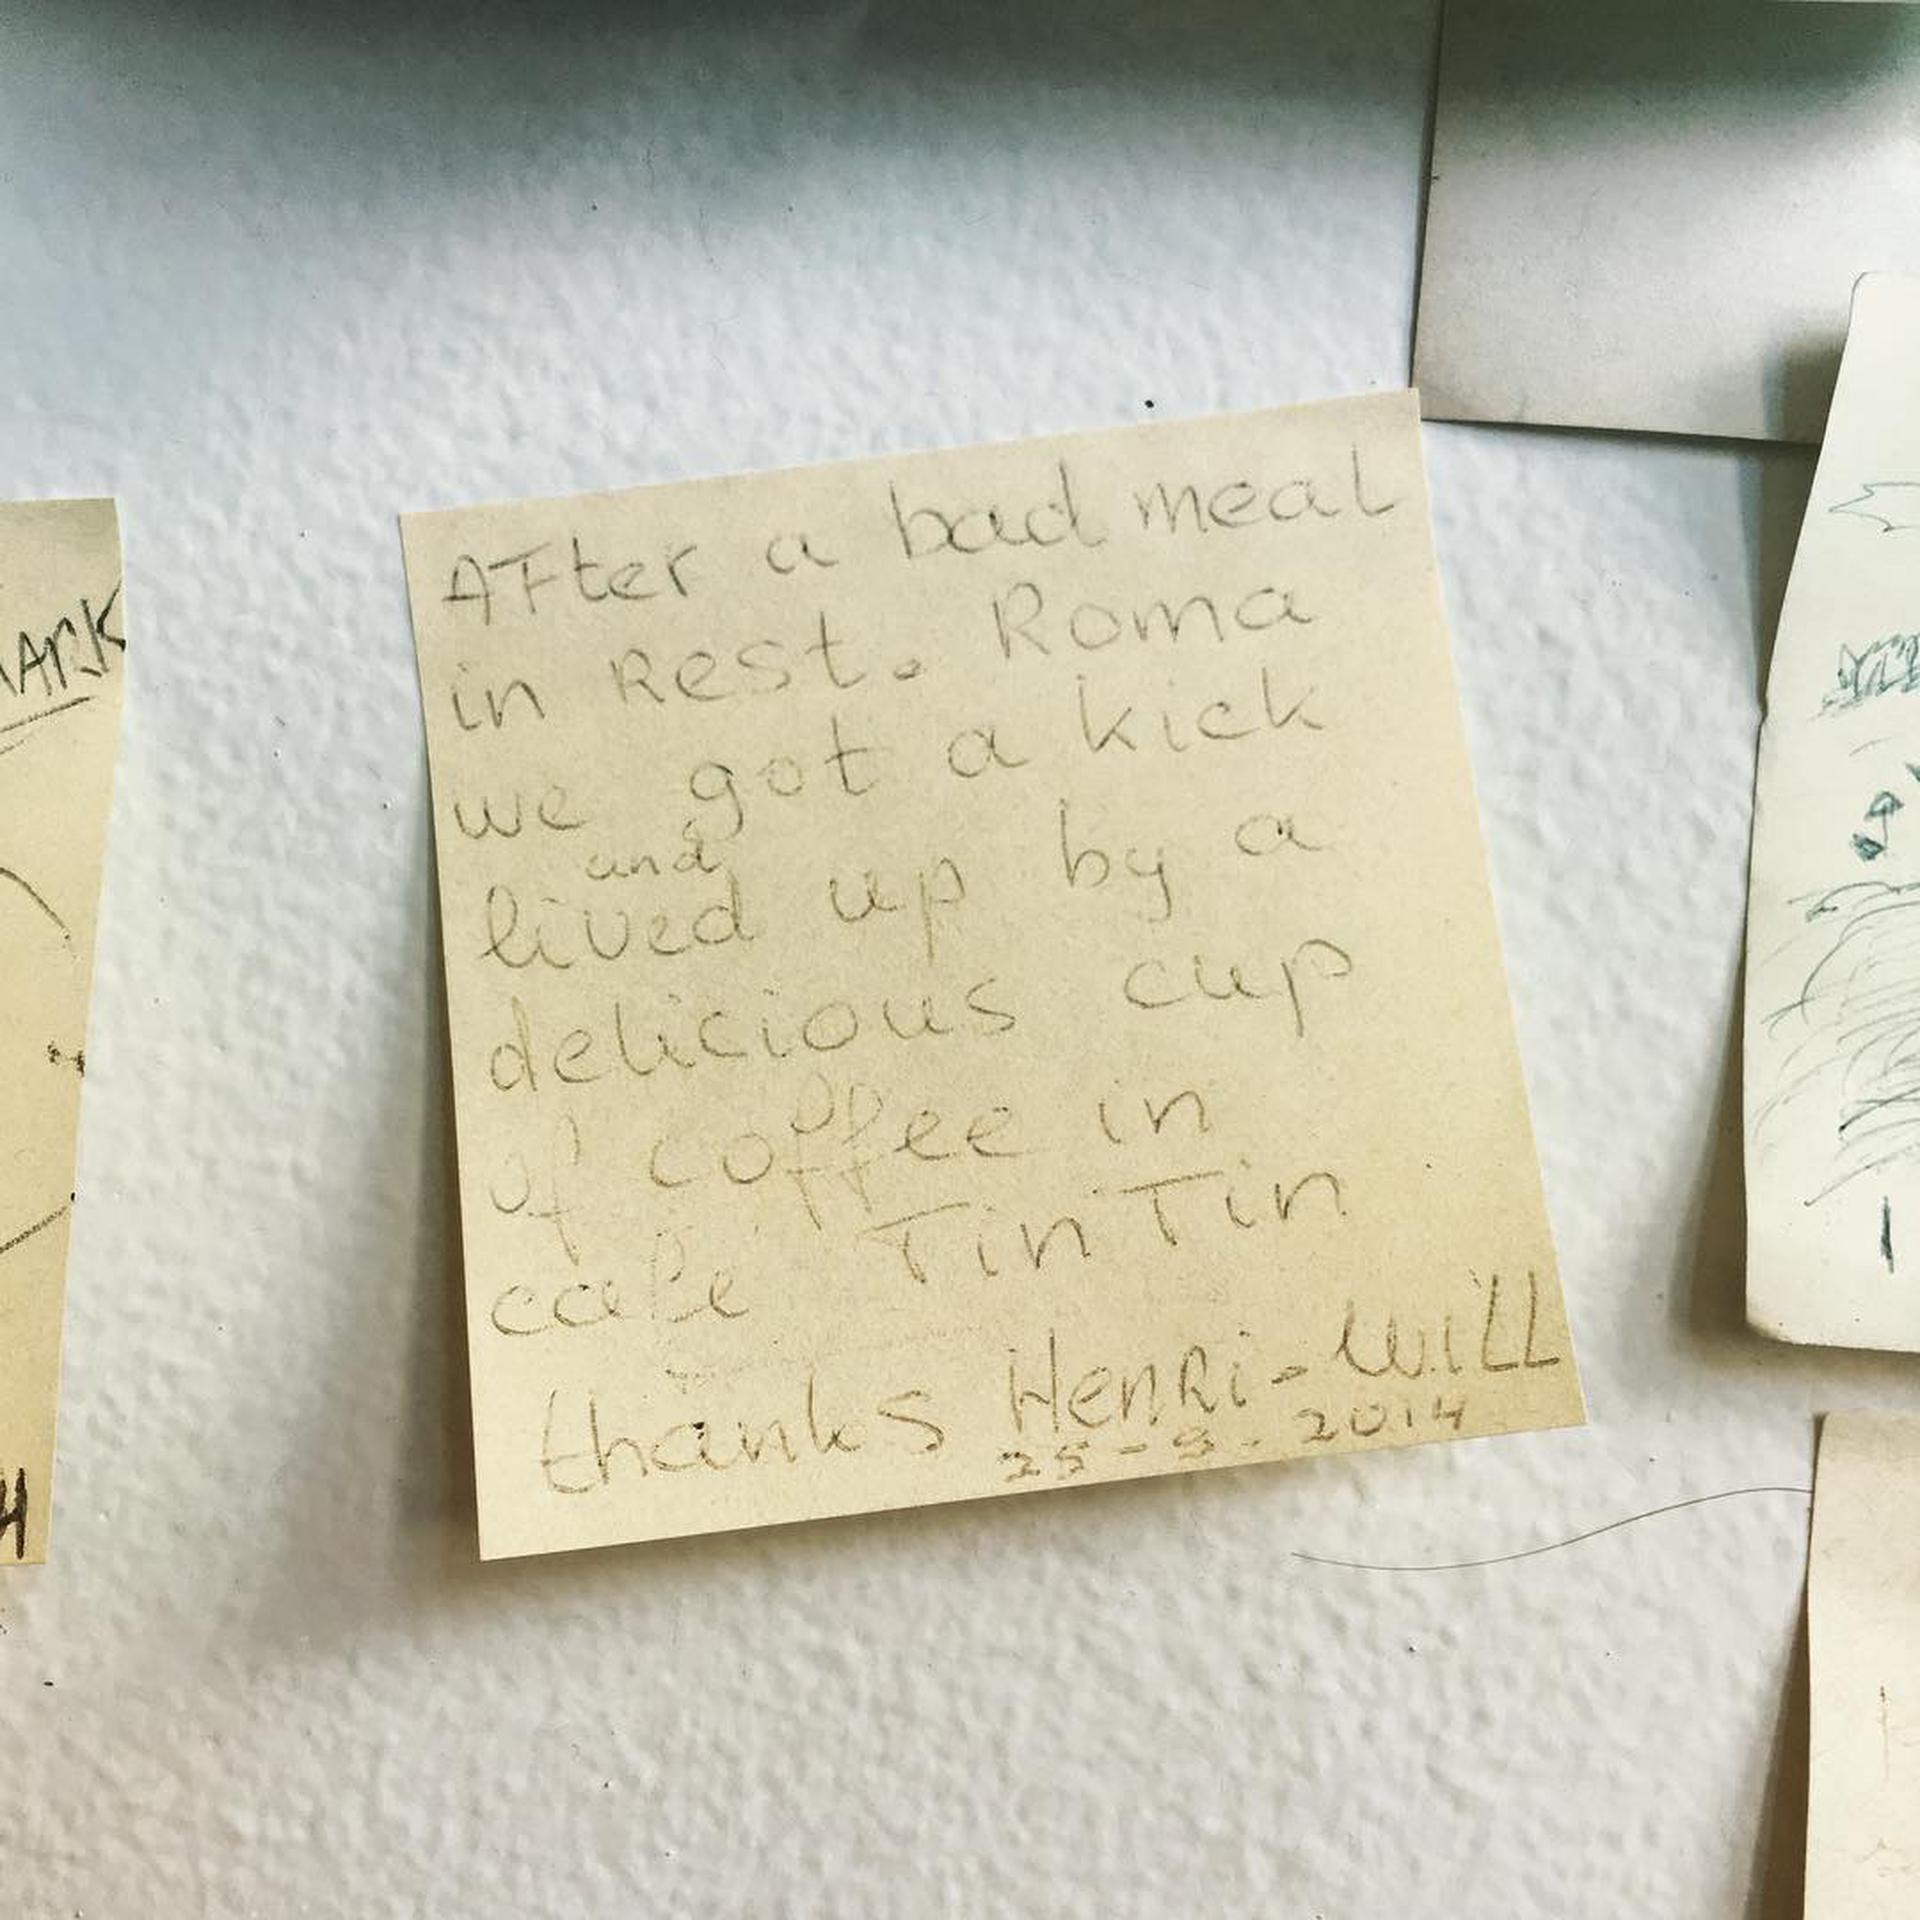 MARK
H
AFter a bad meal
in Rest. Roma
we got a kick
and
lived up by a
delicious cup
of coffee in
cafe TinTin
thanks Henri-Will
25-9-2014